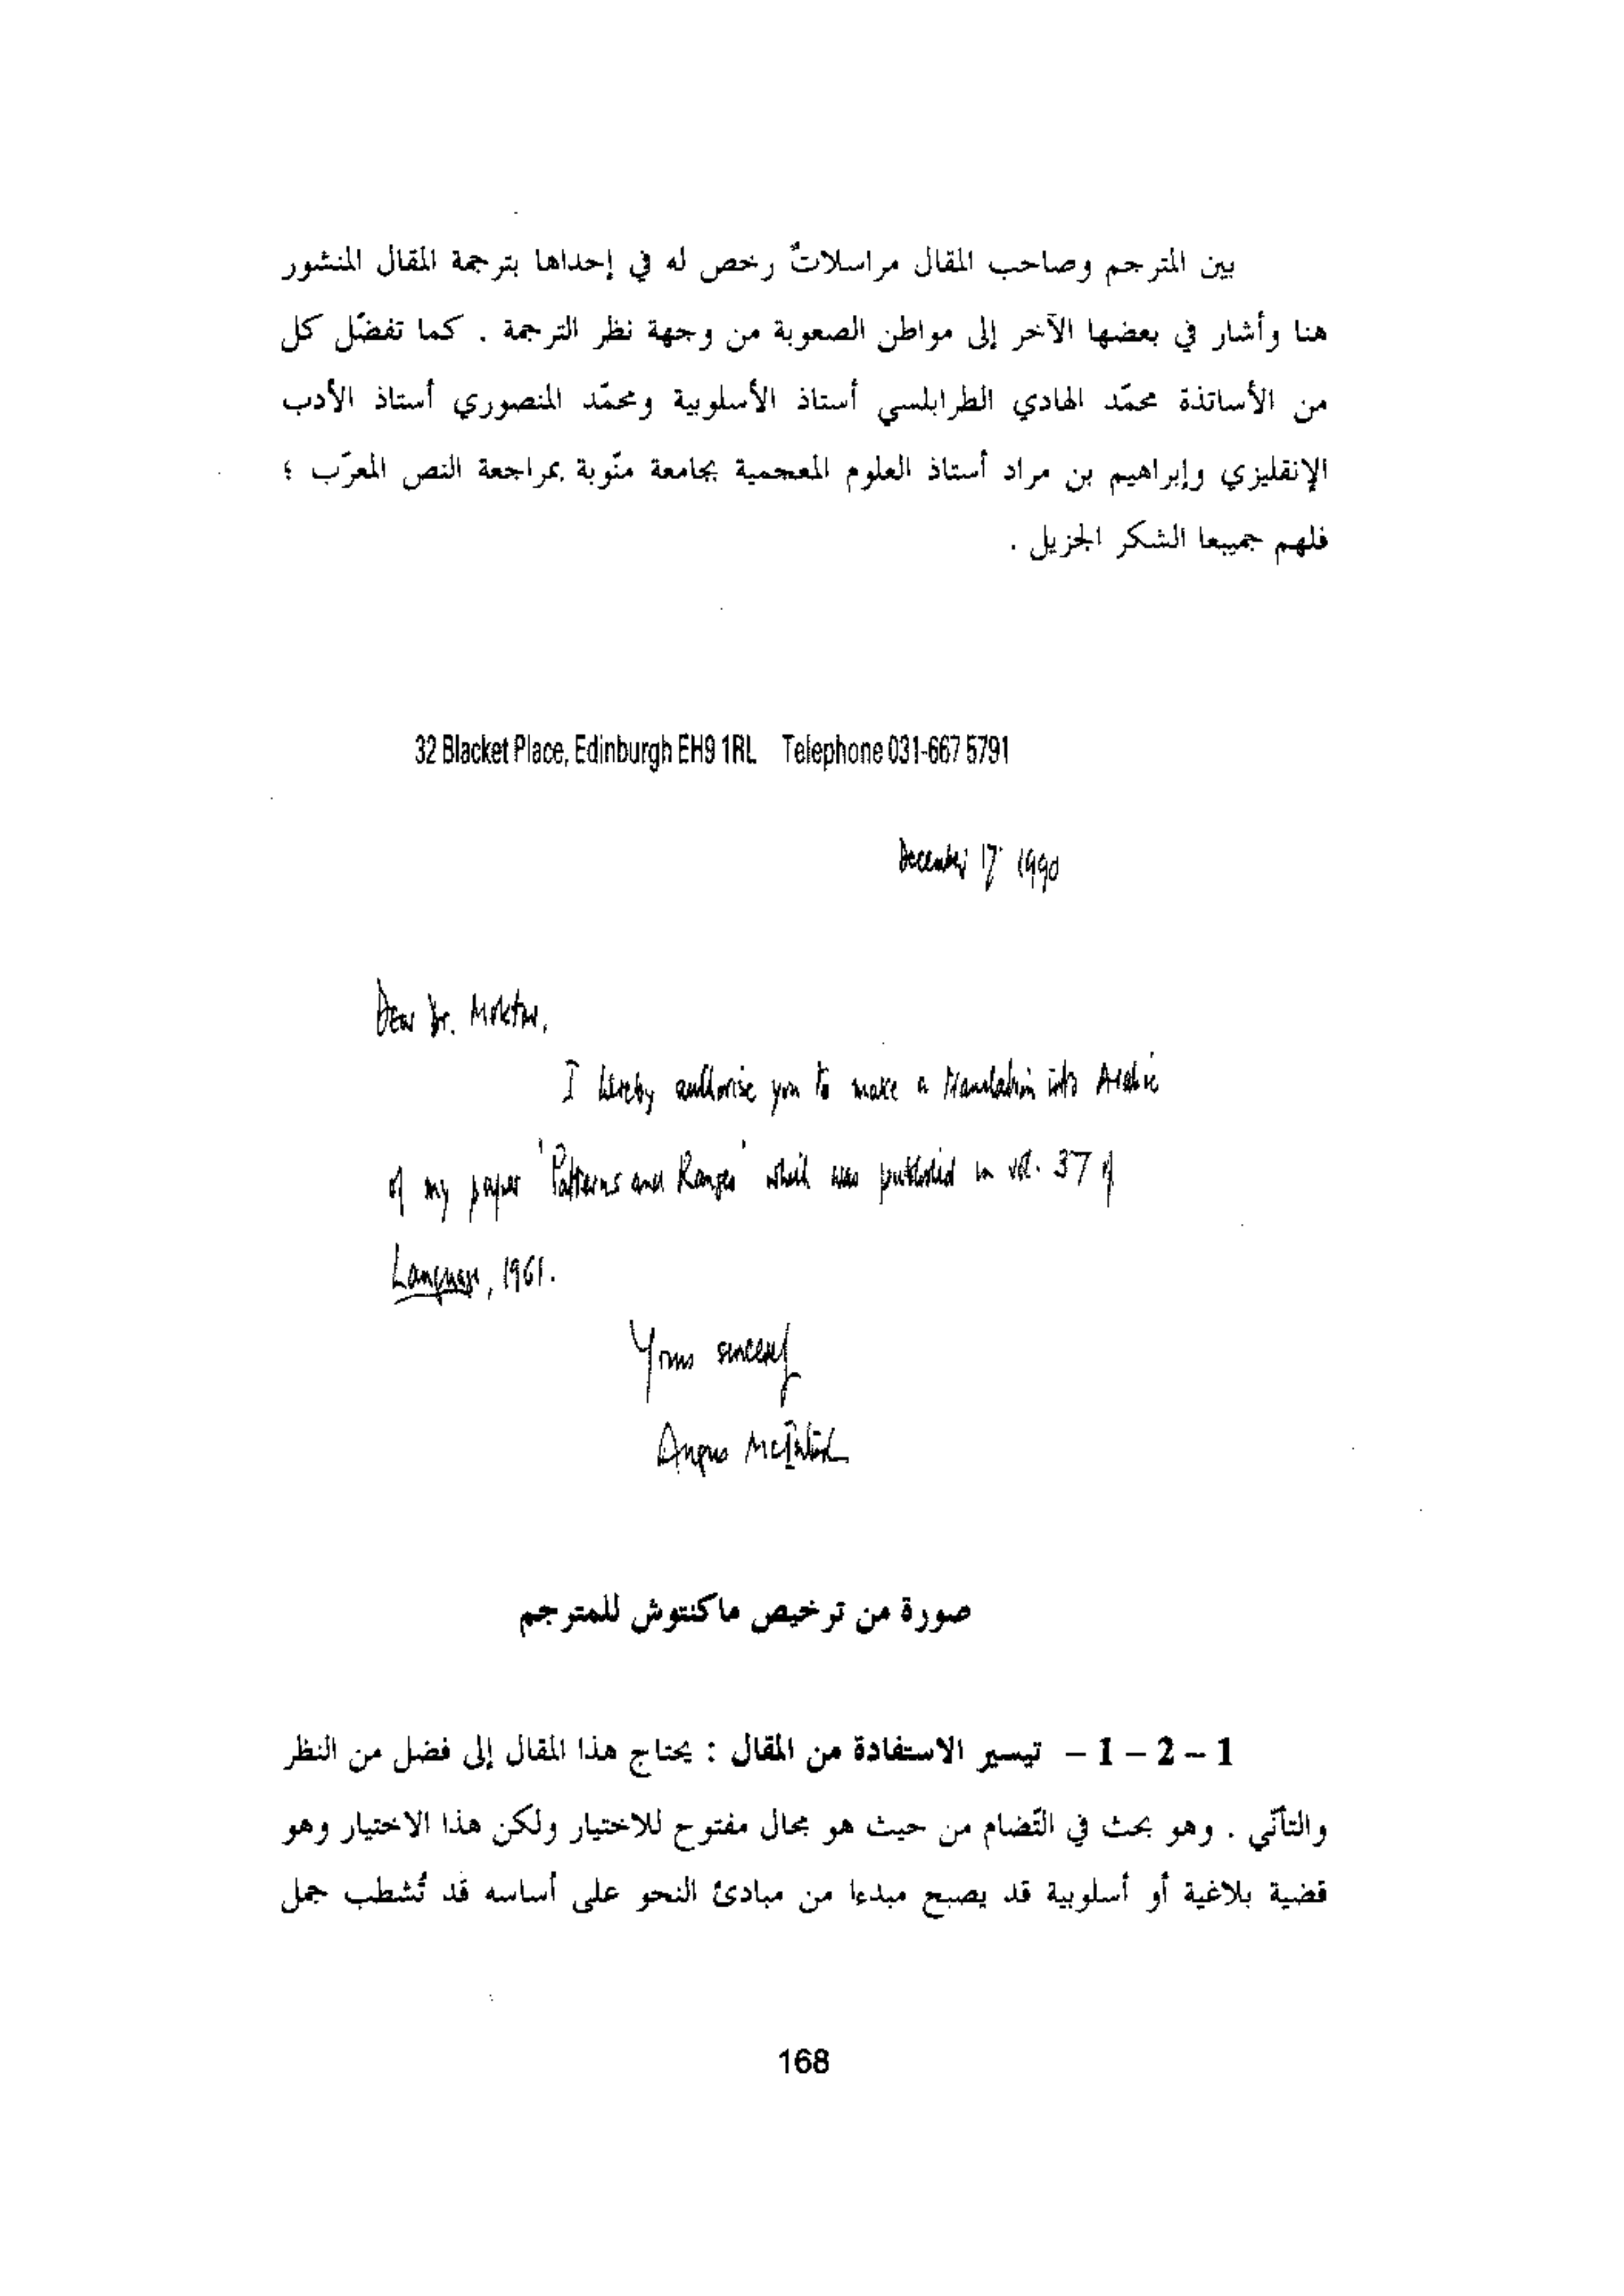 بين المترجم وصاحب المقال مراسلاتٌ رخص له في إحداها بترجمة المقال المنشور
هنا وأشار في بعضها الآخر إلى مواطن الصعوبة من وجهة نظر الترجمة . كما تفضّل كل
من الأساتذة محمّد الهادي الطرابلسي أستاذ الأسلوبية ومحمّد المنصوري أستاذ الأدب
الإنقليزي وإبراهيم بن مراد أستاذ العلوم المعجمية بجامعة منّوبة بمراجعة النص المعرّب ؛
فلهم جميعا الشكر الجزيل .
32 Blacket Place, Edinburgh EH9 1RL Telephone 031-667 5791
December 17 1990
Dear Dr. Moktar,
I hereby authorise you to make a translation into Arabic
of my paper 'Patterns and Ranges' which was published in vol. 37 of
Language, 1961.
Yours sincerely
Angus McIntosh
صورة من ترخيص ماكنتوش للمترجم
1 – 2 – 1 – تيسير الاستفادة من المقال : يحتاج هذا المقال إلى فضل من النظر
والتأنّي . وهو بحث في التّضام من حيث هو مجال مفتوح للاختيار ولكن هذا الاختيار وهو
قضية بلاغية أو أسلوبية قد يصبح مبدءا من مبادئ النحو على أساسه قد تُشطب جمل
168